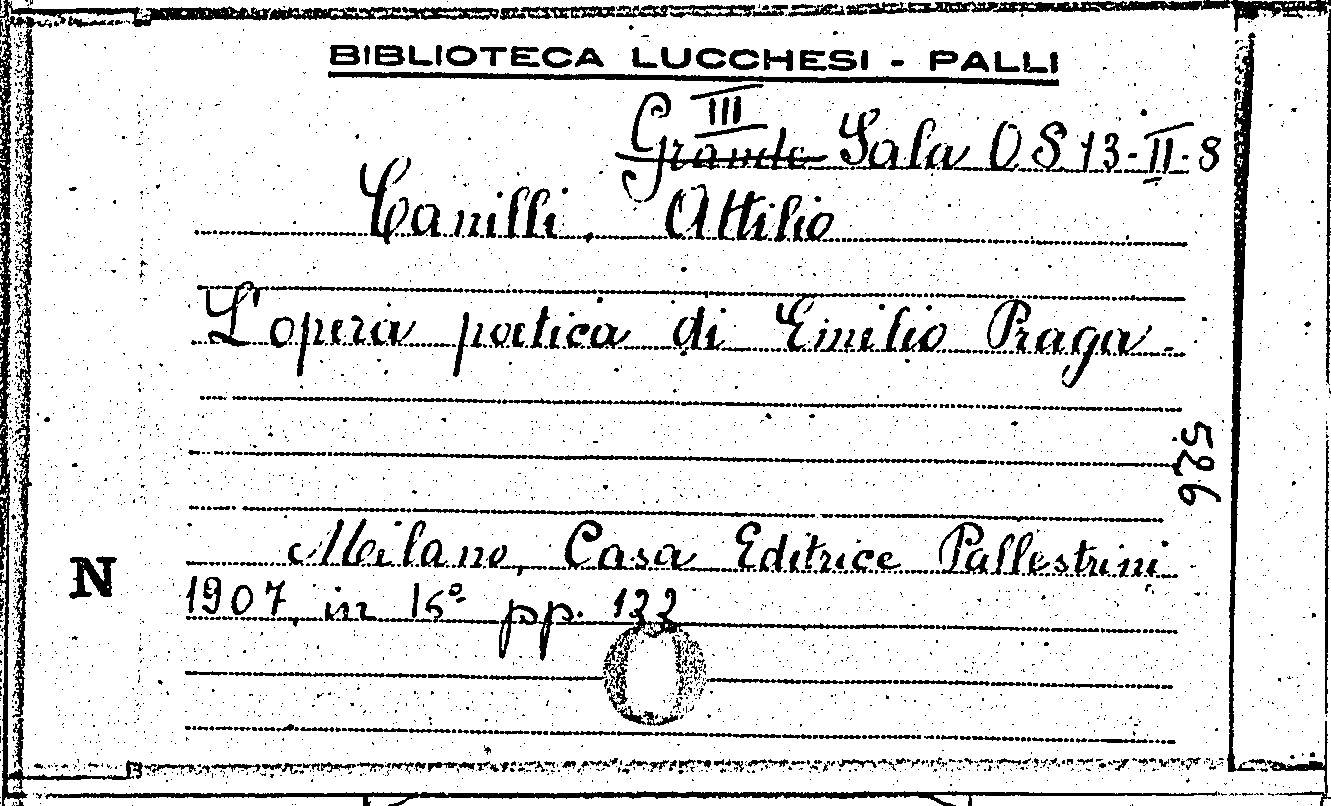 BIBLIOTECA LUCCHESI - PALLI
III
Grande Sala O S 13-II-8
Canilli, Attilio
L'opera poetica di Emilio Praga.
526
Milano, Casa Editrice Pallestrini
N
1907, in 16° pp. 122